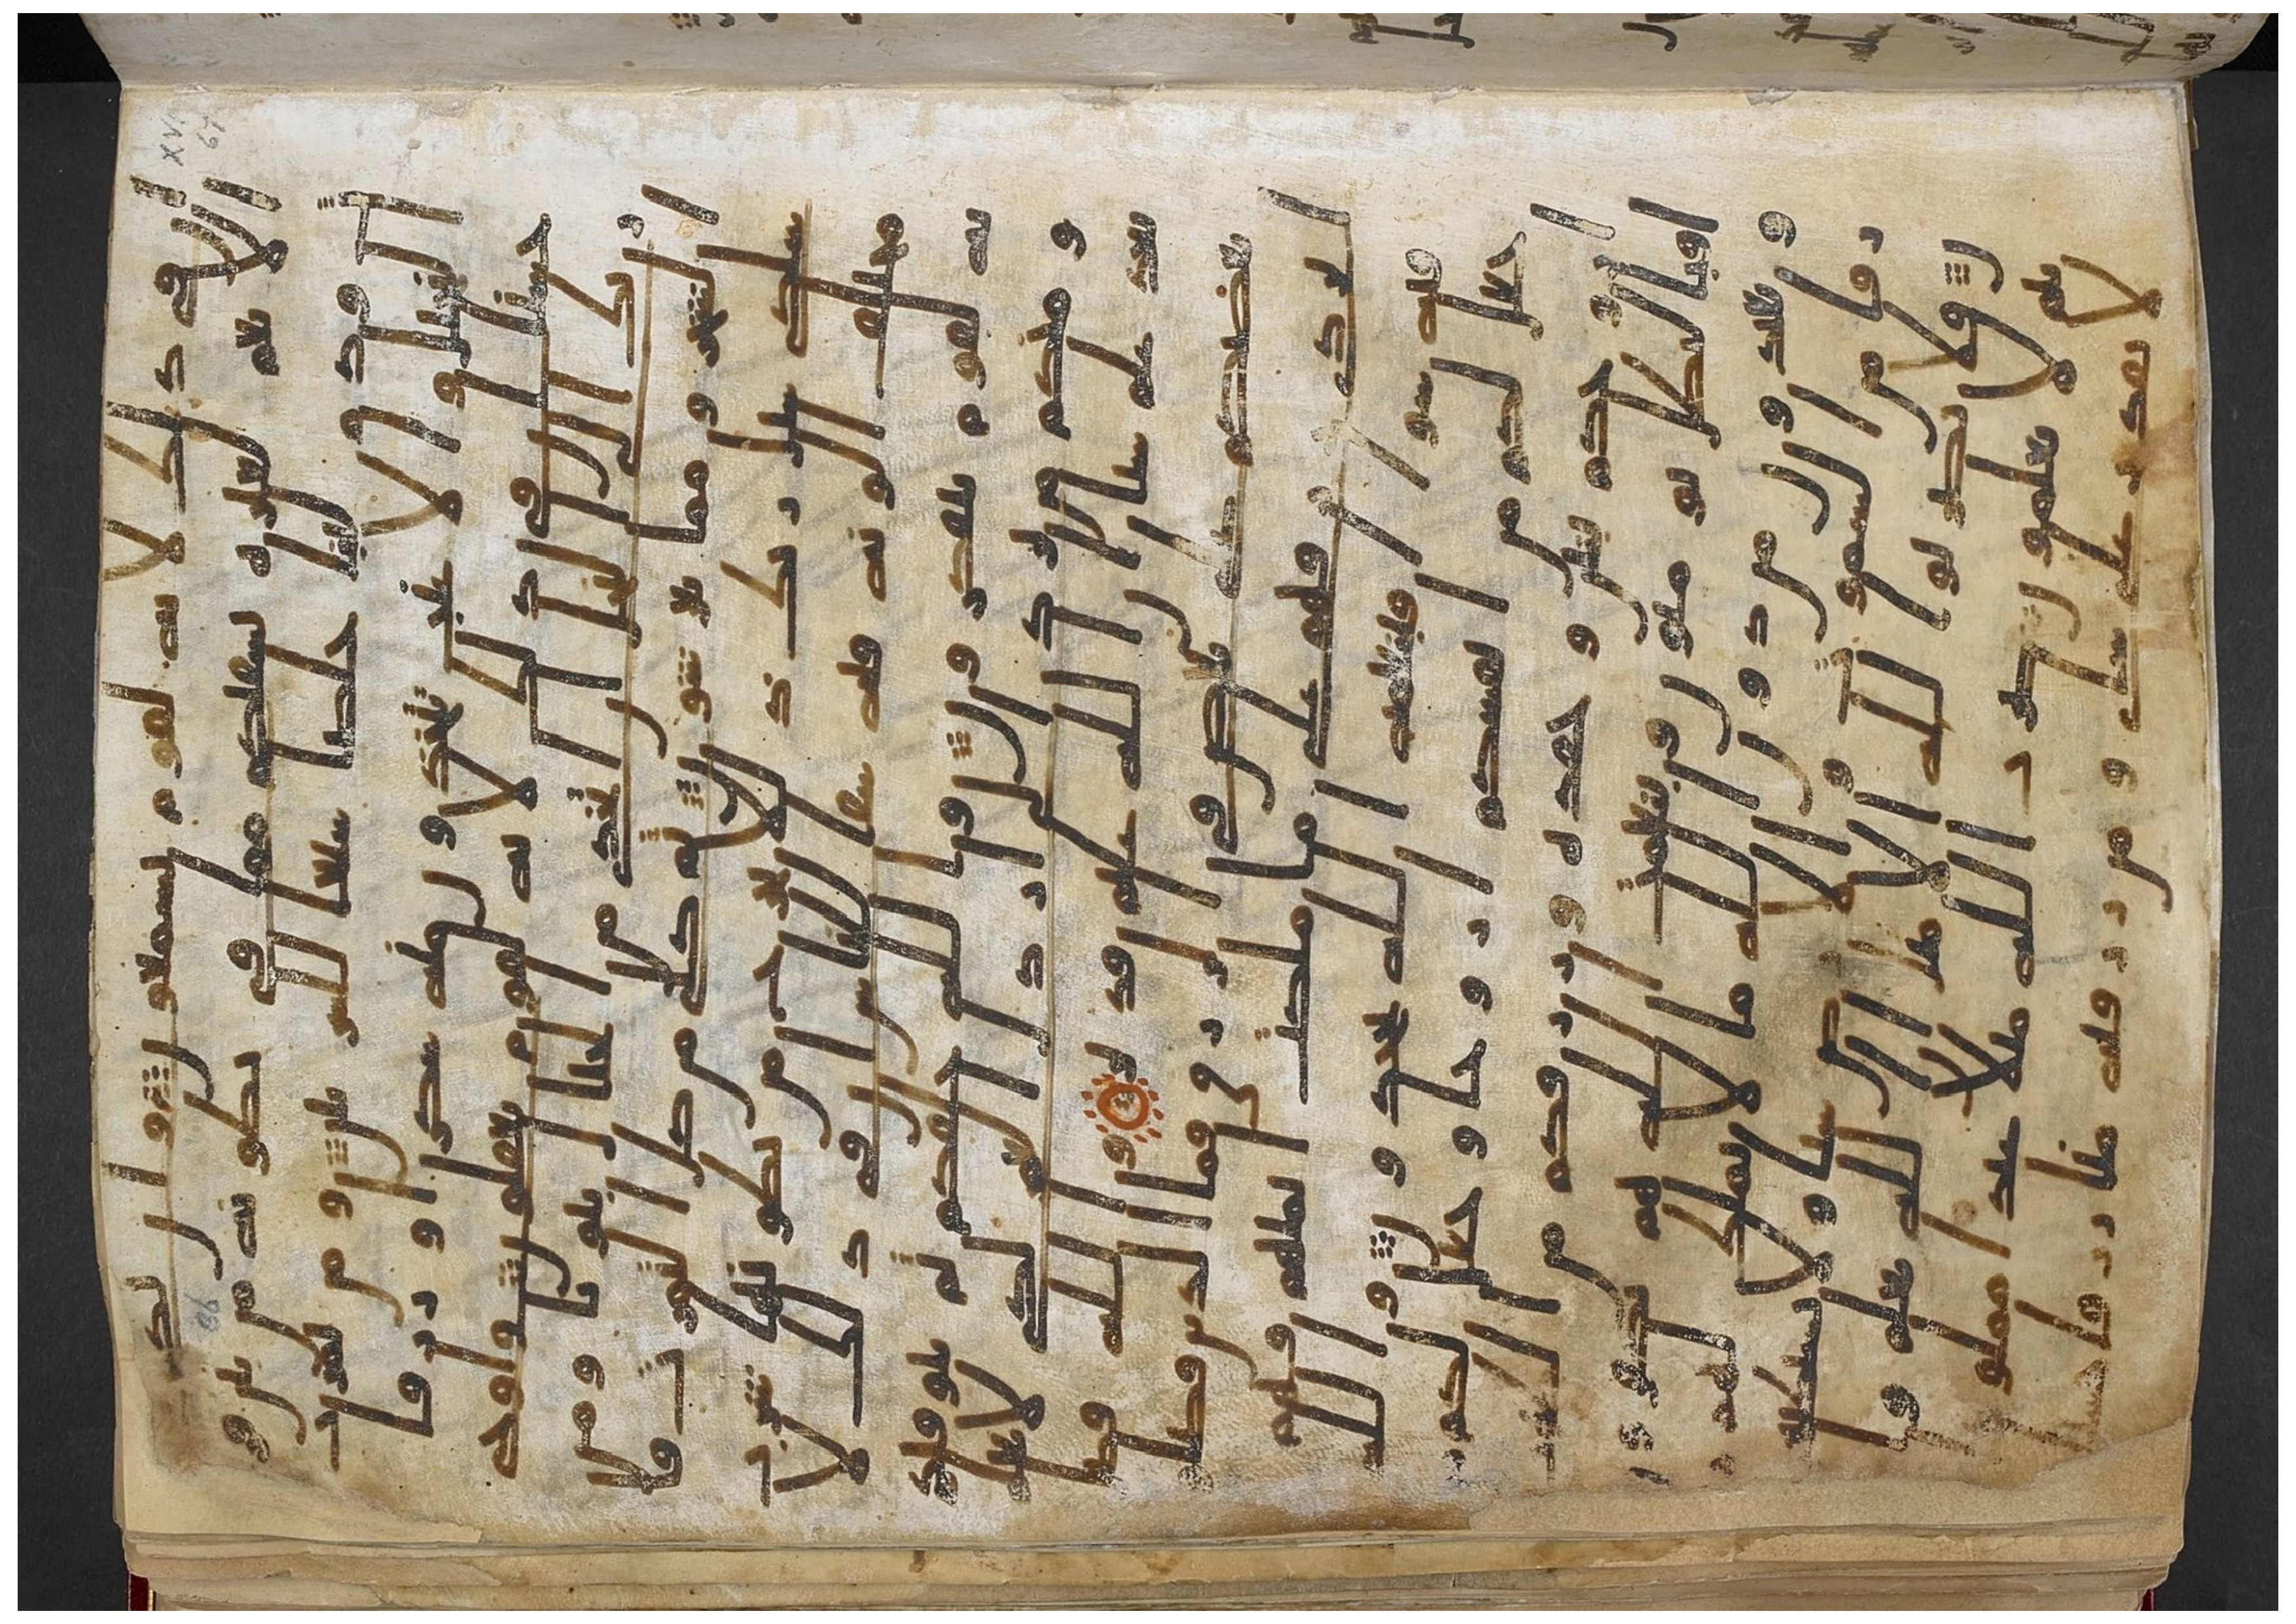 ا ن في ذلك لاية لقوم يسمعون وان لكم في
الانعم لعبرة نسقيكم مما في بطونه من بين فر
ث ودم لبنا خلصا سئغا للشربين ومن ثمرت
النخيل والاعنب تتخذون منه سكرا ورزقا
حسنا ان في ذلك لاية لقوم يعقلون واوحى
ربك الى النحل ان اتخذي من الجبال بيوتا ومن ا
لشجر ومما يعرشون ثم كلي من كل الثمرت فا
سلكي سبل ربك ذللا يخرج من بطونها شرب
مختلف الونه فيه شفا للناس ان في ذلك لا
ية لقوم يتفكرون والله خلقكم ثم يتوفيكم
ومنكم من يرد الى ارذل العمر لكيلا يعلم
بعد علم شيا ان الله عليم قدير والله فضل
بعضكم على بعض في الرزق فما الذين فضلوا
برادي رزقهم على ما ملكت ايمنهم فهم
فيه سوا افبنعمة الله يجحدون والله
جعل لكم من انفسكم ازوجا وجعل لكم من
ازوجكم بنين وحفدة ورزقكم من الطيبت
افبالبطل يومنون وبنعمت الله هم يكفرون
ويعبدون من دون الله ما لا يملك لهم
رزقا من السموت والارض شيا ولا يستطيعو
ن فلا تضربوا لله الامثل ان الله يعلم وا
نتم لا تعلمون ضرب الله مثلا عبدا مملوكا
لا يقدر على شي ومن رزقنه منا رزقا حسنا